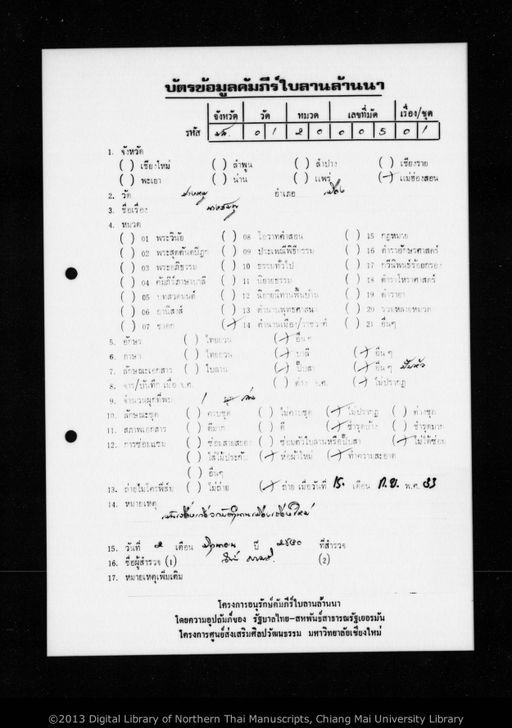 บัตรข้อมูลคัมภีร์ใบลานล้านนา
จังหวัด วัด หมวด เลขที่มัด เรื่อง/ชุด
รหัส มส. 0 1 2 0 0 0 5 0 1
1. จังหวัด
( ) เชียงใหม่ ( ) ลำพูน ( ) ลำปาง ( ) เชียงราย
( ) พะเยา ( ) น่าน ( ) แพร่ (/) แม่ฮ่องสอน
2. วัด อำเภอ เมือง
3. ชื่อเรื่อง
4. หมวด
( ) 01 พระวินัย ( ) 08 โอวาทคำสอน ( ) 15 กฎหมาย
( ) 02 พระสุตตันตปิฎก ( ) 09 ประเพณีพิธีกรรม ( ) 16 ตำราอักษรศาสตร์
( ) 03 พระอภิธรรม ( ) 10 ธรรมทั่วไป ( ) 17 กวีนิพนธ์ร้อยกรอง
( ) 04 คัมภีร์ภาษาบาลี ( ) 11 นิยายธรรม ( ) 18 ตำราโหราศาสตร์
( ) 05 บทสวดมนต์ ( ) 12 นิยายนิทานพื้นบ้าน ( ) 19 ตำรายา
( ) 06 อานิสงส์ ( ) 13 ตำนานพุทธศาสนา ( ) 20 รวมหลายหมวด
( ) 07 ชาดก (/) 14 ตำนานเมือง/ราชวงศ์ ( ) 21 อื่นๆ
5. อักษร ( ) ไทยยวน (/) อื่นๆ
6. ภาษา ( ) ไทยยวน (/) บาลี (/) อื่นๆ
7. ลักษณะเอกสาร ( ) ใบลาน (/) ปั๊บสา (/) อื่นๆ
8. จาร/บันทึก เมื่อ จ.ศ. ( ) ต่าง จ.ศ. (/) ไม่ปรากฏ
9. จำนวนผูกที่พบ 1
10. ลักษณะชุด ( ) ครบชุด ( ) ไม่ครบชุด (/) ไม่ปรากฏ ( ) ต่างชุด
11. สภาพเอกสาร ( ) ดีมาก ( ) ดี (/) ชำรุดบ้าง ( ) ชำรุดมาก
12. การซ่อมแซม ( ) ซ่อมสายสยอง ( ) ซ่อมตัวใบลานหรือปั๊บสา (/) ไม่ได้ซ่อม
( ) ใส่ไม้ประกับ (/) ห่อผ้าใหม่ (/) ทำความสะอาด
( ) อื่นๆ
13. ถ่ายไมโครฟิล์ม ( ) ไม่ถ่าย (/) ถ่าย เมื่อวันที่ 15. เดือน ก.ย. พ.ศ. 33
14. หมายเหตุ
15. วันที่ เดือน ปี ๒๕๓๐ ที่สำรวจ
16. ชื่อผู้สำรวจ (1) (2)
17. หมายเหตุเพิ่มเติม
โครงการอนุรักษ์คัมภีร์ใบลานล้านนา
โดยความอุปถัมภ์ของ รัฐบาลไทย-สหพันธ์สาธารณรัฐเยอรมัน
โครงการศูนย์ส่งเสริมศิลปวัฒนธรรม มหาวิทยาลัยเชียงใหม่
©2013 Digital Library of Northern Thai Manuscripts, Chiang Mai University Library